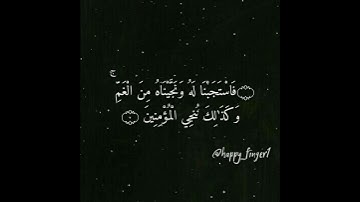 ۝فَاسْتَجَبْنَا لَهُ وَنَجَّيْنَاهُ مِنَ الْغَمِّ ۚ
وَكَذَٰلِكَ نُنجِي الْمُؤْمِنِينَ ۝
@happy_finger1